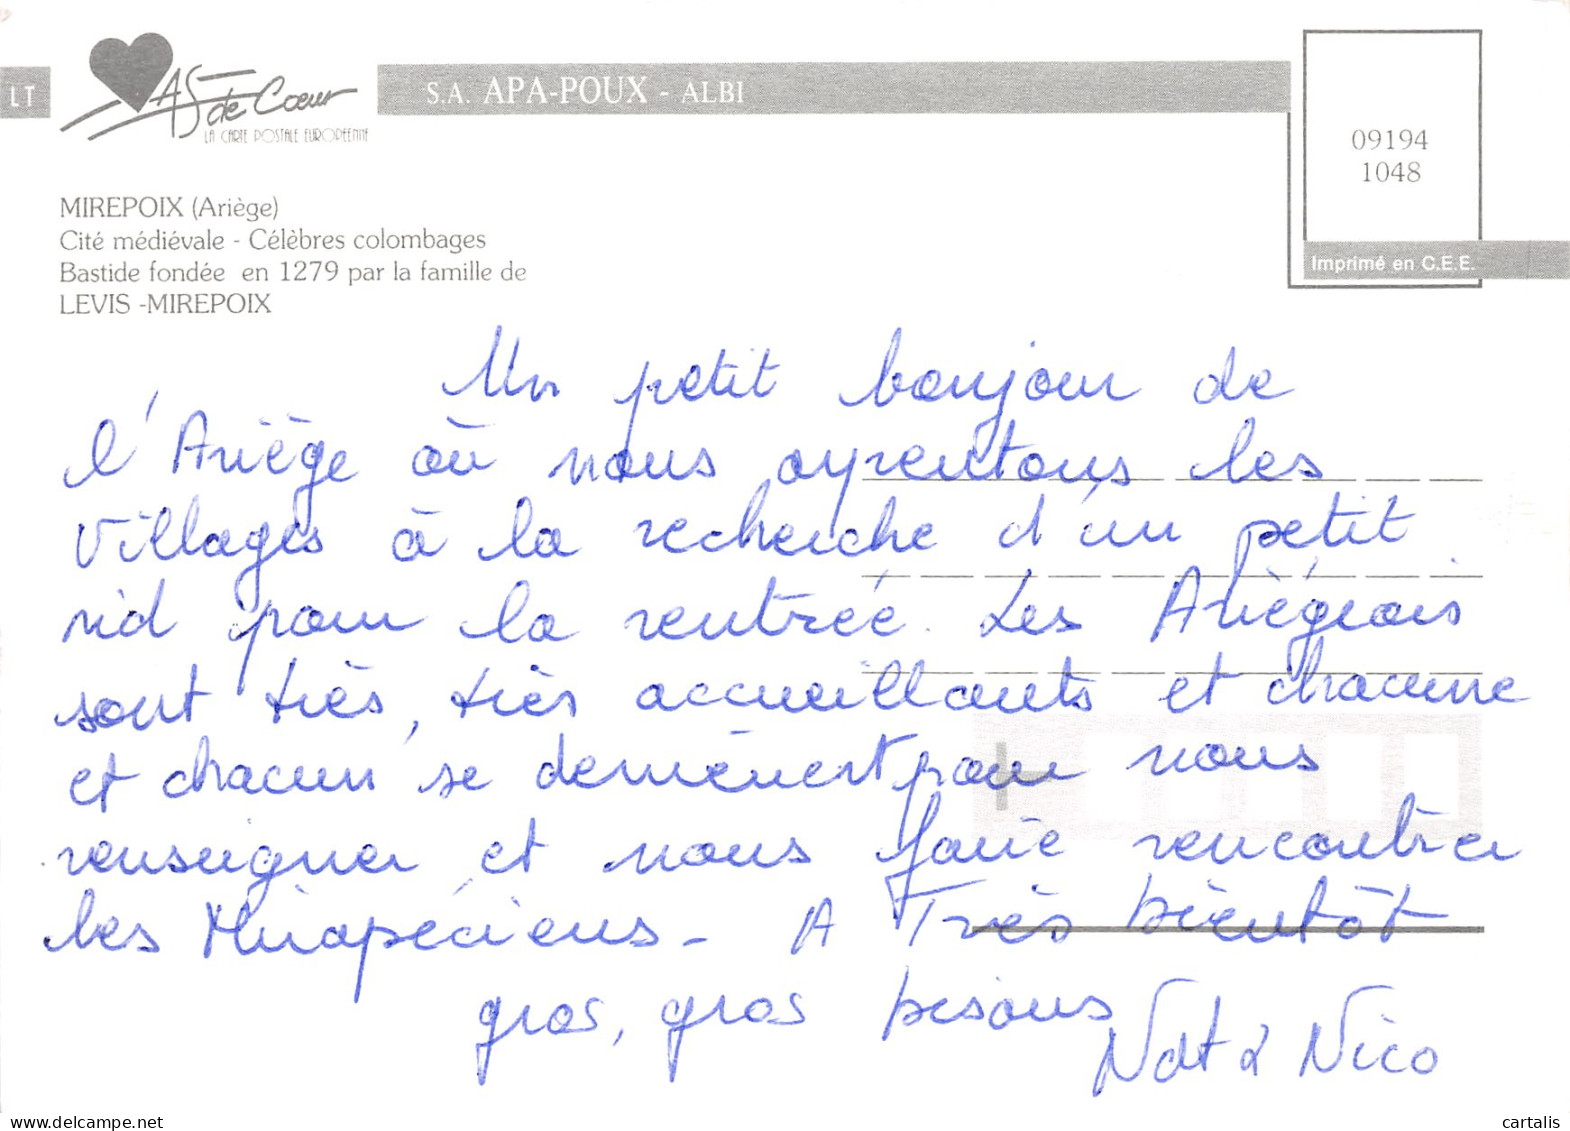 LT
AS de Coeur
LA CARTE POSTALE EUROPÉENNE
S.A. APA-POUX - ALBI
09194
1048
Imprimé en C.E.E.
MIREPOIX (Ariège)
Cité médiévale - Célèbres colombages
Bastide fondée en 1279 par la famille de
LEVIS -MIREPOIX
Un petit bonjour de
l'Ariège où nous arpentons les
villages à la recherche d'un petit
nid pour la rentrée. Les Ariégeois
sont très, très accueillants et chacune
et chacun se démènent pour nous
renseigner et nous faire rencontrer
les Mirapéciens - A Très bientôt
gros, gros bisous
Nat & Nico
cartalis